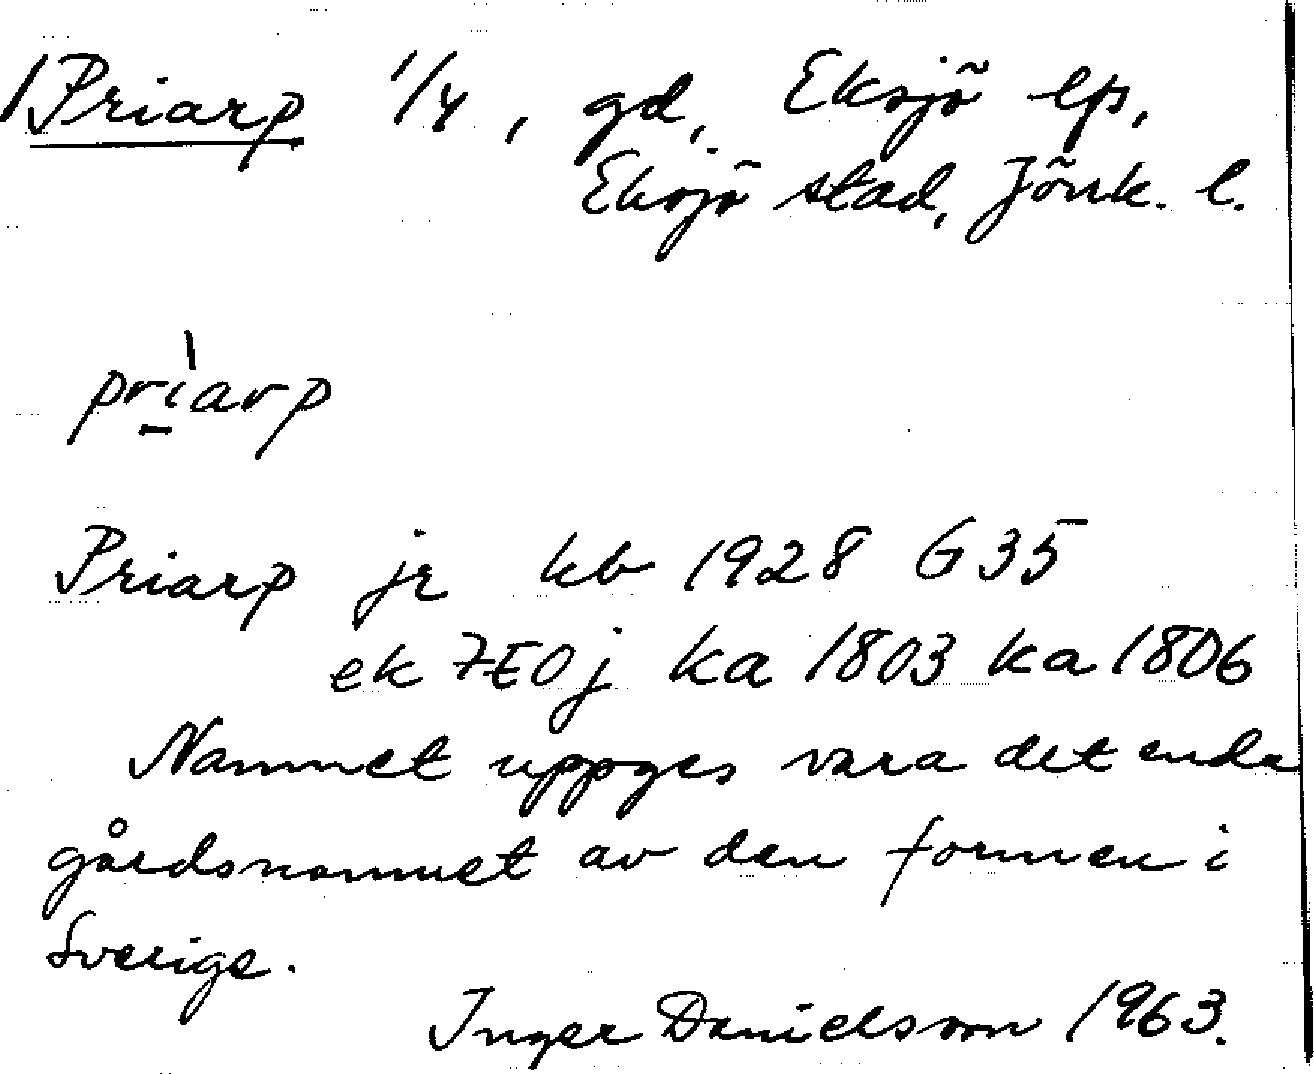 Priarp 1/4, gd, Eksjö lfs,
Eksjö stad, Jönk. l.
prìarp
Priarp jr kb 1928 G35
ek 7E0j ka 1803 ka 1806
Namnet uppges vara det enda
gårdsnamnet av den formen i
Sverige.
Inger Danielsson 1963.